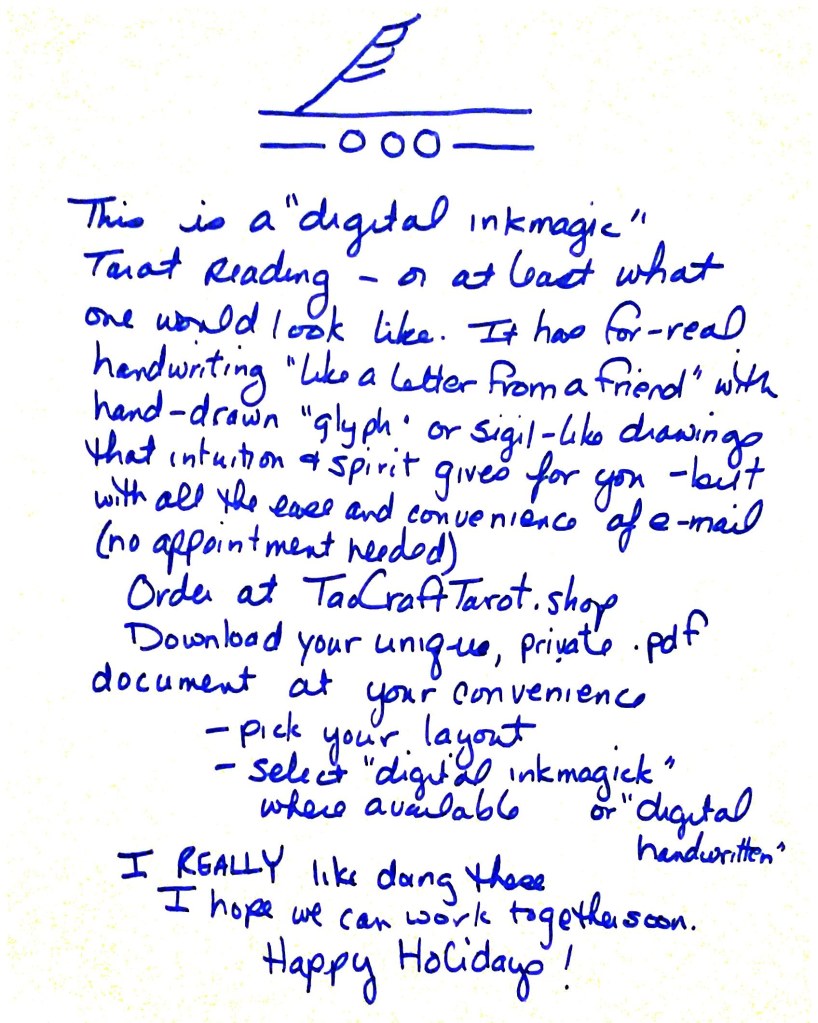 This is a "digital inkmagic"
Tarot Reading - or at least what
one would look like. It has for-real
handwriting "like a letter from a friend" with
hand-drawn "glyph" or sigil-like drawings
that intuition & spirit gives for you - but
with all the ease and convenience of e-mail
(no appointment needed)
Order at TaoCraftTarot.shop
Download your unique, private .pdf
document at your convenience
- pick your layout
- select "digital inkmagick"
where available or "digital
handwritten"
I REALLY like doing these
I hope we can work together soon.
Happy Holidays!